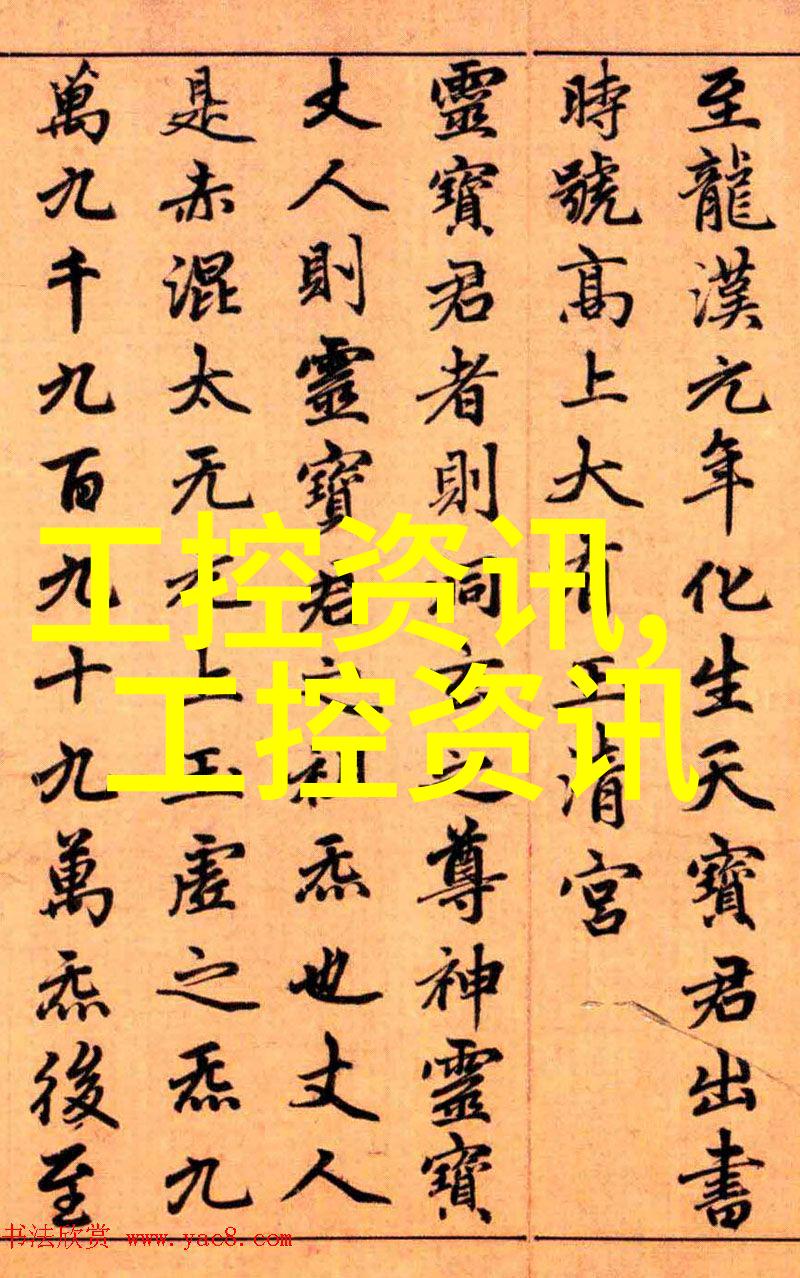 至龍漢元年化生天寶君出書
時號高上大有玉清宮
靈寶君者則洞玄之尊神靈寶
丈人則靈寶君之祖炁也丈人
是赤混太无元上玉虛之炁九
萬九千九百九十九萬炁後至
工控资讯,
工控资讯
书法欣赏 www.yac8.com